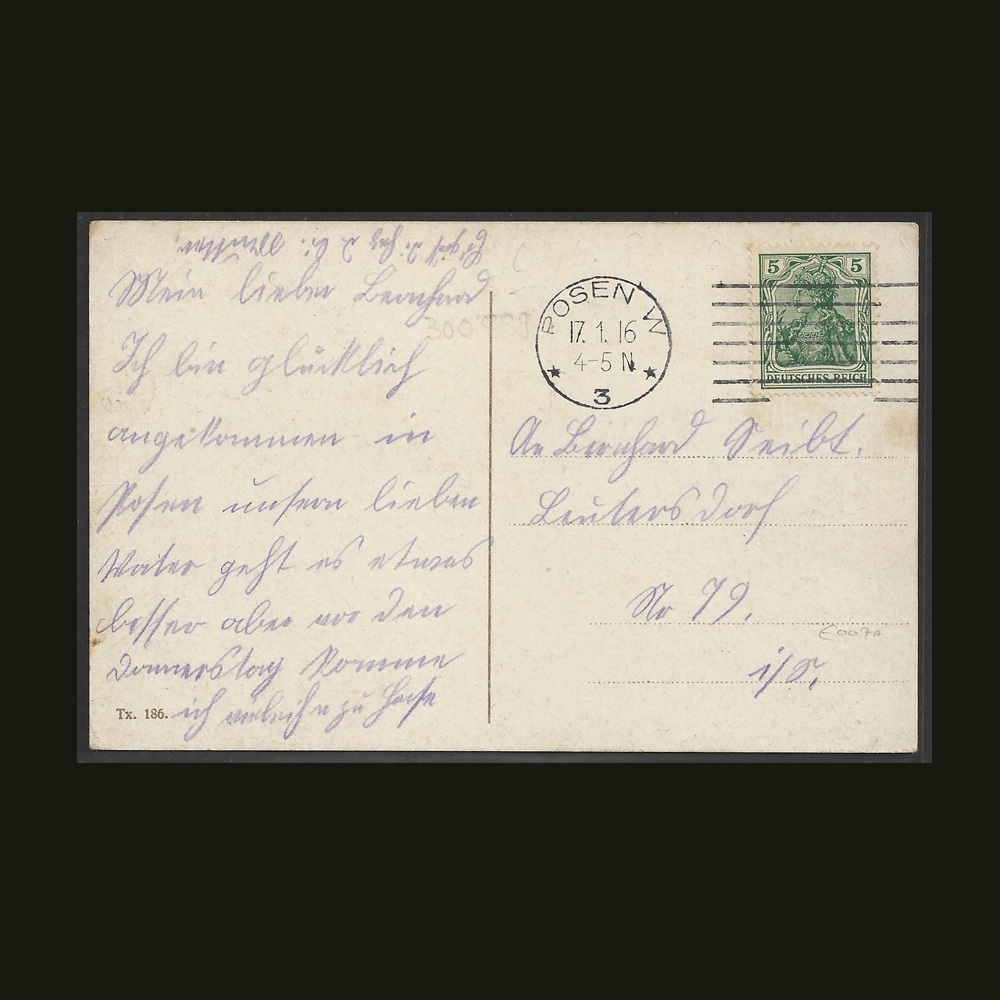 Mein lieber Bernhard
Ich bin glücklich
angekommen in
Posen unsern lieben
Vater geht es etwas
besser aber vor den
Donnerstag komme
ich nicht zu Hause
Tx. 186.
POSEN W
17. 1. 16
4-5 N
3
5 5
DEUTSCHES REICH
An Bernhard Seibt.
Leutersdorf
No 79.
i/S.